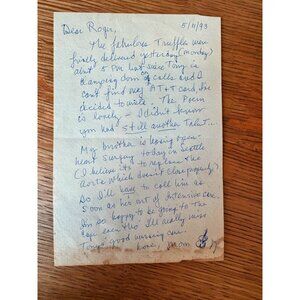 5/11/93
Dear Roger,
The fabulous Truffles were
finely delivered yesterday (Monday)
abt 5 PM but since Tony is
clamping down on calls and I
can't find my AT+T card I've
decided to write. The Poem
is lovely – I didn't know
you had still another Talent...
My brother is having open-
heart surgery today in Seattle
(I believe it's to replace the
aorta which doesn't close properly)
So I'll have to call him as
soon as he's out of Intensive care.
I'm so happy to be going to the
Cape soon tho I'll really miss
Tony's good nursing care.
Love, Mom